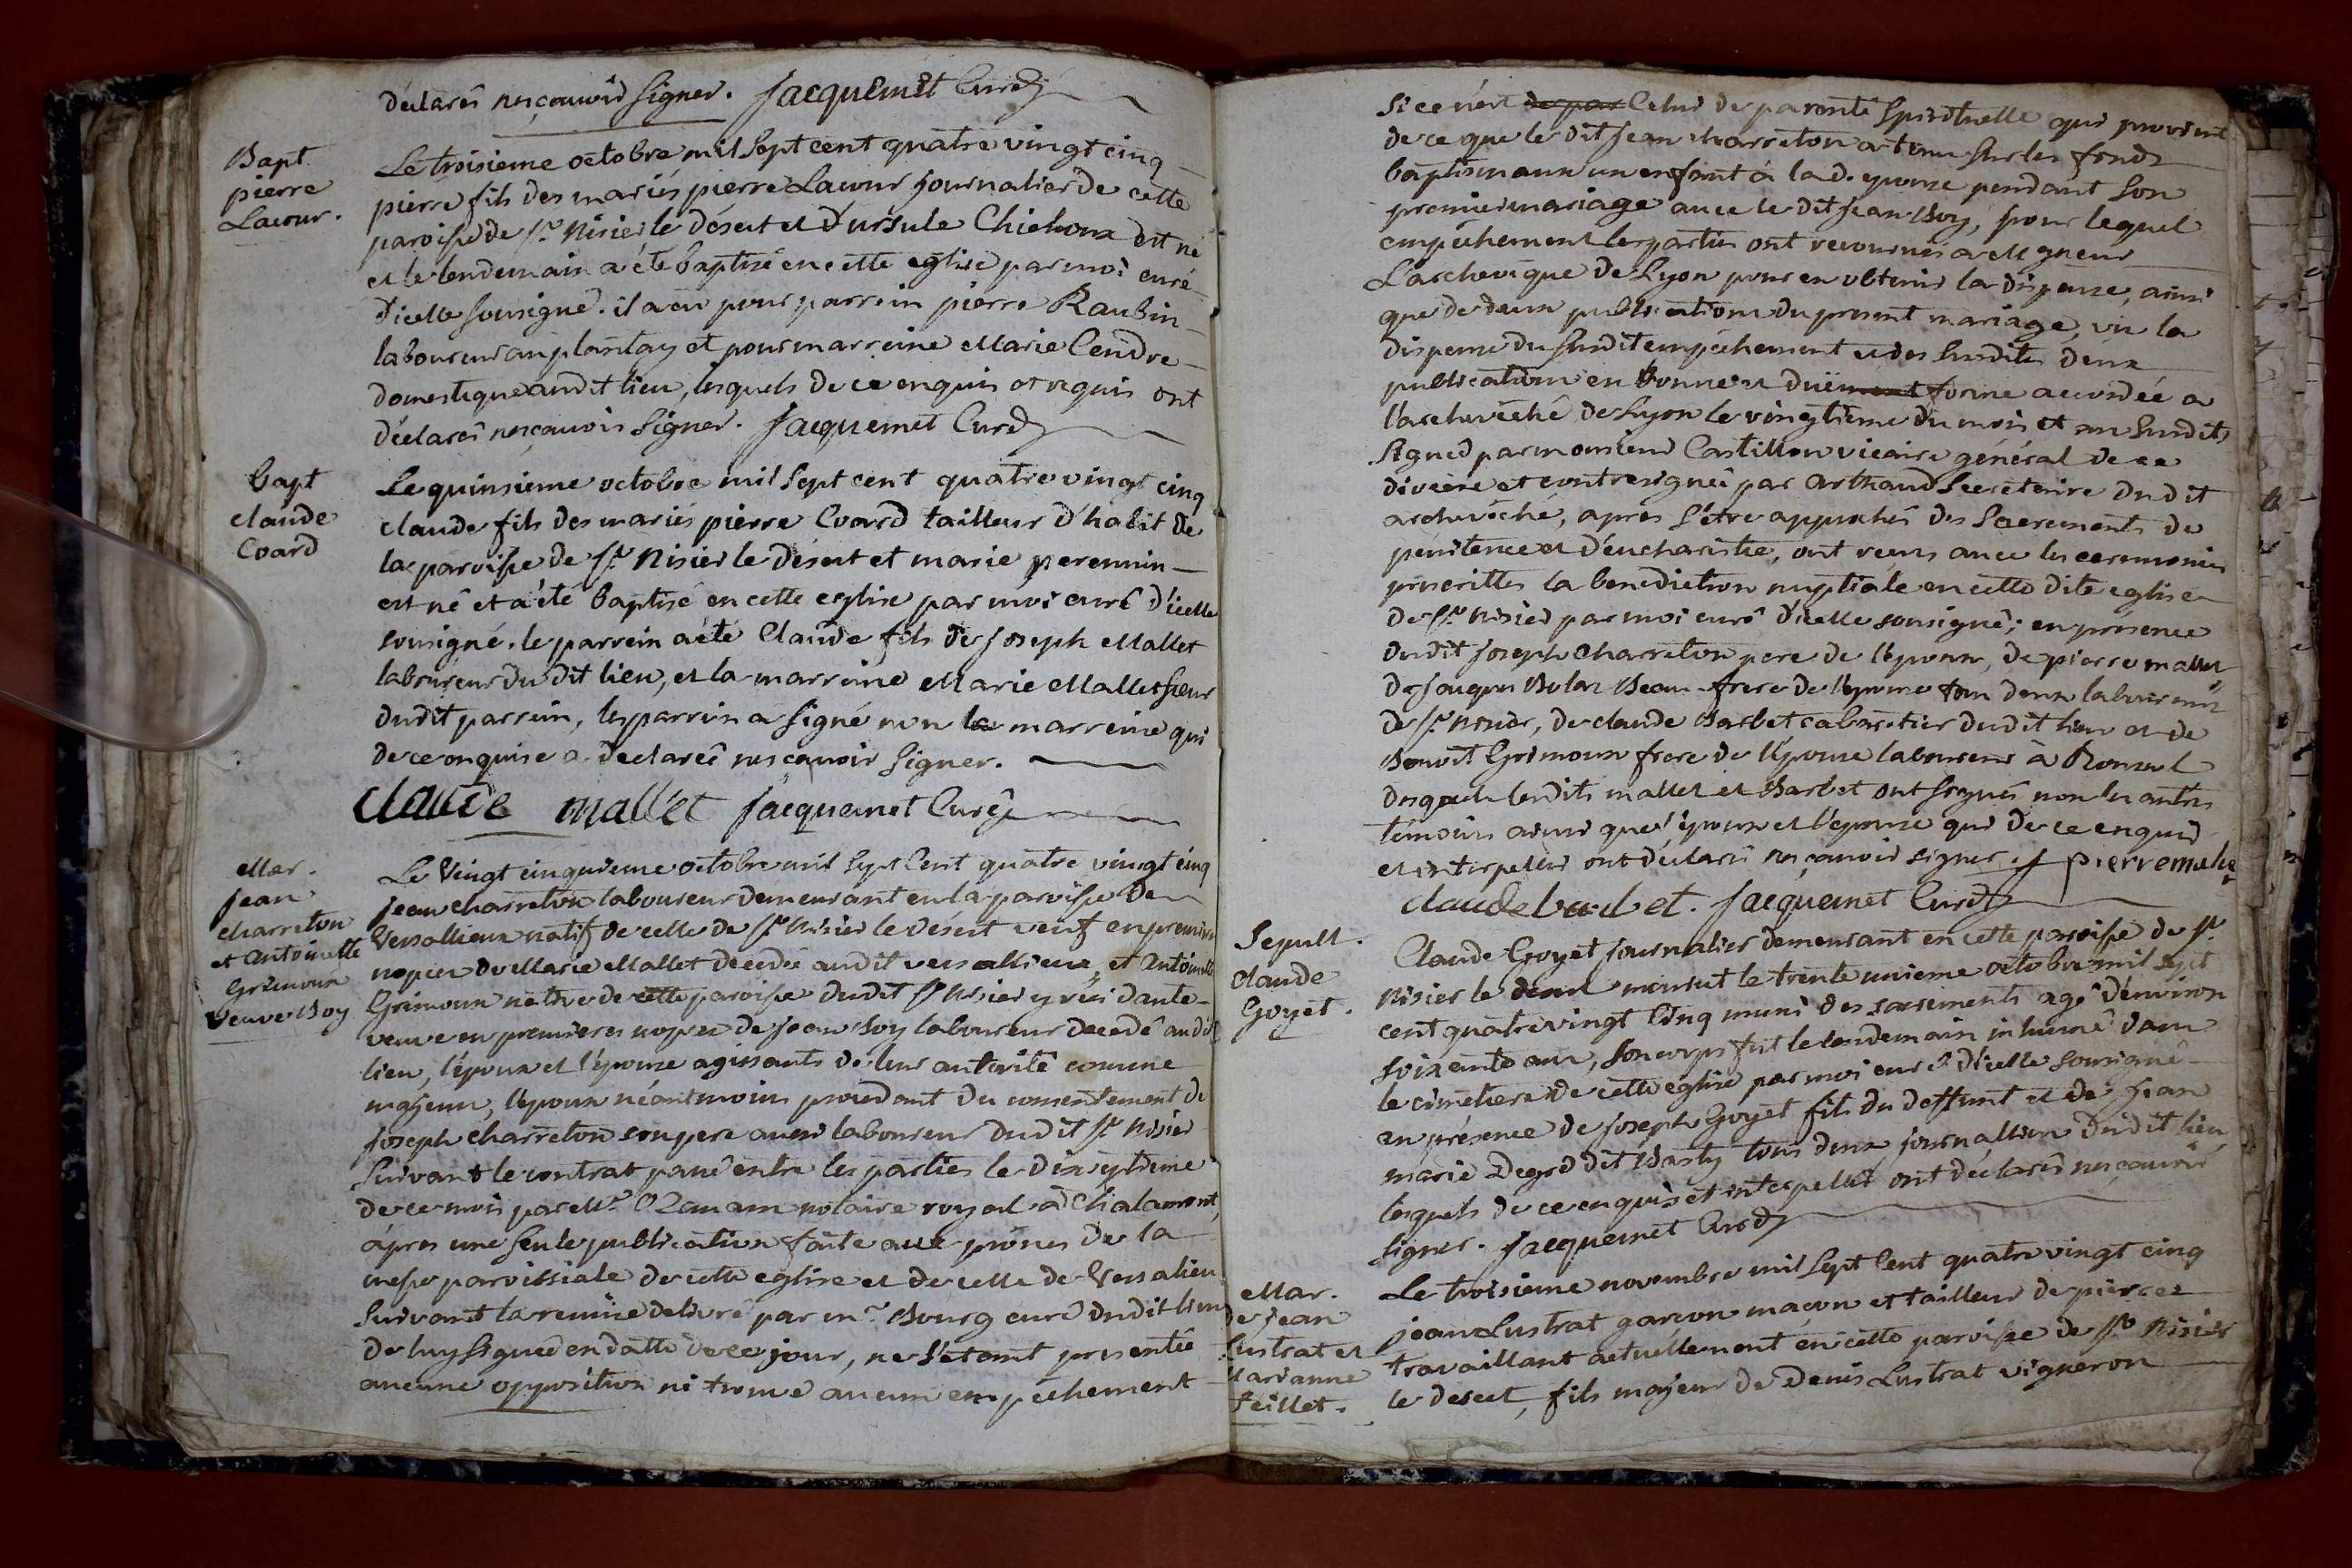 déclarés ne sçavoir signer. Jacquemet Curé
Bapt.
pierre
Lacour.
Le troisieme octobre mil sept cent quatre vingt cinq
pierre fils des mariés pierre Lacour journalier de cette
paroisse de St. Nisier le désert et d'ursule Chichoux est né
et le lendemain a été baptisé en cette eglise par moi curé
d'icelle soussigné. il a eu pour parrein pierre Raubin
laboureur au plantay et pour marreine Marie Cendre
domestique audit lieu, lesquels de ce enquis et requis ont
déclarés ne sçavoir signer. Jacquemet Curé
bapt
claude
Coard
Le quinsieme octobre mil sept cent quatre vingt cinq
claude fils des mariés pierre Coard tailleur d'habit de
la paroisse de St. Nisier le désert et marie perennin
est né et a été baptisé en cette eglise par moi curé d'icelle
sousigné. le parrein a été Claude fils de joseph Mallet
laboureur du dit lieu, et la marreine Marie Mallet soeur
dudit parrein, le parrein a signé non la marreine qui
de ce enquise a declarée ne sçavoir signer.
claude mallet Jacquemet Curé
Mar.
jean
charreton
et Antoinette
Grimoux
veuve Boy
Le vingt cinquieme octobre mil sept cent quatre vingt cinq
jean charreton laboureur demeurant en la paroisse de
Versallieux natif de celle de St. Nisier le désert veuf en premieres
nopces de Marie Mallet décédée audit versallieux, et Antoinette
Grimoux native de cette paroisse dudit St Nisier y résidante
veuve en premieres nopces de jean Boy laboureur decedé audit
lieu, l'époux et l'épouse agissants de leur autorité comme
majeurs, l'epoux néantmoins procedant du consentement de
joseph charreton son pere aussi laboureur dudit St Nisier
suivant le contrat passé entre les parties le dixseptieme
de ce mois par Me. Ozanam notaire royal à Chalamont,
après une seule publication faite aux prônes de la
messe paroissiale de cette eglise et de celle de Versalieu
suivant la remise delivré par mr. Bourg curé dudit lieu
de luy signée en datte de ce jour, ne s'étant presentée
aucune opposition ni trouvé aucun empechement
si ce n'est de par celui de parenté spirituelle qui provient
de ce que le dit jean charreton a tenu sur les fonds
baptismaux un enfant à la d. epouse pendant son
premier mariage avec le dit jean Boy, pour lequel
empêchement les parties ont recournés a Mgneur
L'archevêque de Lyon pour en obtenir la dispense, ainsi
que de deux publications du present mariage, vu la
dispense du susdit empéchement et des susdites deux
publications en bonne et duëment forme accordée a
l'archevêché de Lyon le vingtieme du mois et an susdits
signed par monsieur Castillon vicaire général de ce
diocèse et contresignée par Arthaud secretaire dudit
archevêché, après s'être approchés des sacrements de
pénitence et d'eucharistie, ont reçus avec les ceremonies
prescrittes la benediction nuptiale en cette dite eglise
de St. Nisier par moi curé d'icelle sousigné; en présence
dudit joseph charreton pere de l'epoux, de pierre mallet
de jaques Bolas Beau-frere de l'epouse tous deux laboureurs
de St. Nisier, de claude Barbet cabaretier dudit lieu et de
Benoit Grimoux frere de l'épouse laboureur à Ronzuel
desquels lesdits mallet et Barbet ont signés non les autres
témoins ainsi que l'époux et l'épouse qui de ce enquis
et interpellés ont déclarés ne sçavoir signer. pierre malet
claude barbet. Jacquemet Curé
Sepult.
claude
Goyet.
Claude Goyet journalier demeurant en cette paroisse de St.
Nisier le desert mourut le trente unieme octobre mil sept
cent quatre vingt cinq muni des sacrements agé d'environ
soixante ans, son corps fut le lendemain inhumé dans
le cimetiere de cette eglise par moi curé d'icelle sousigné
en présence de joseph Goyet fils du deffunt et de jean
marie Degrd dit Basty tous deux journalliers dudit lieu
lesquels de ce enquis et interpellés ont déclarés ne sçavoir
signer. Jacquemet Curé
Mar.
de jean
Lustrat et
Marianne
feillet.
Le troisieme novembre mil sept cent quatre vingt cinq
jean Lustrat garçon maçon et tailleur de pierres
travaillant actuellement en cette paroisse de St Nisier
le desert, fils majeur de Denis Lustrat vigneron